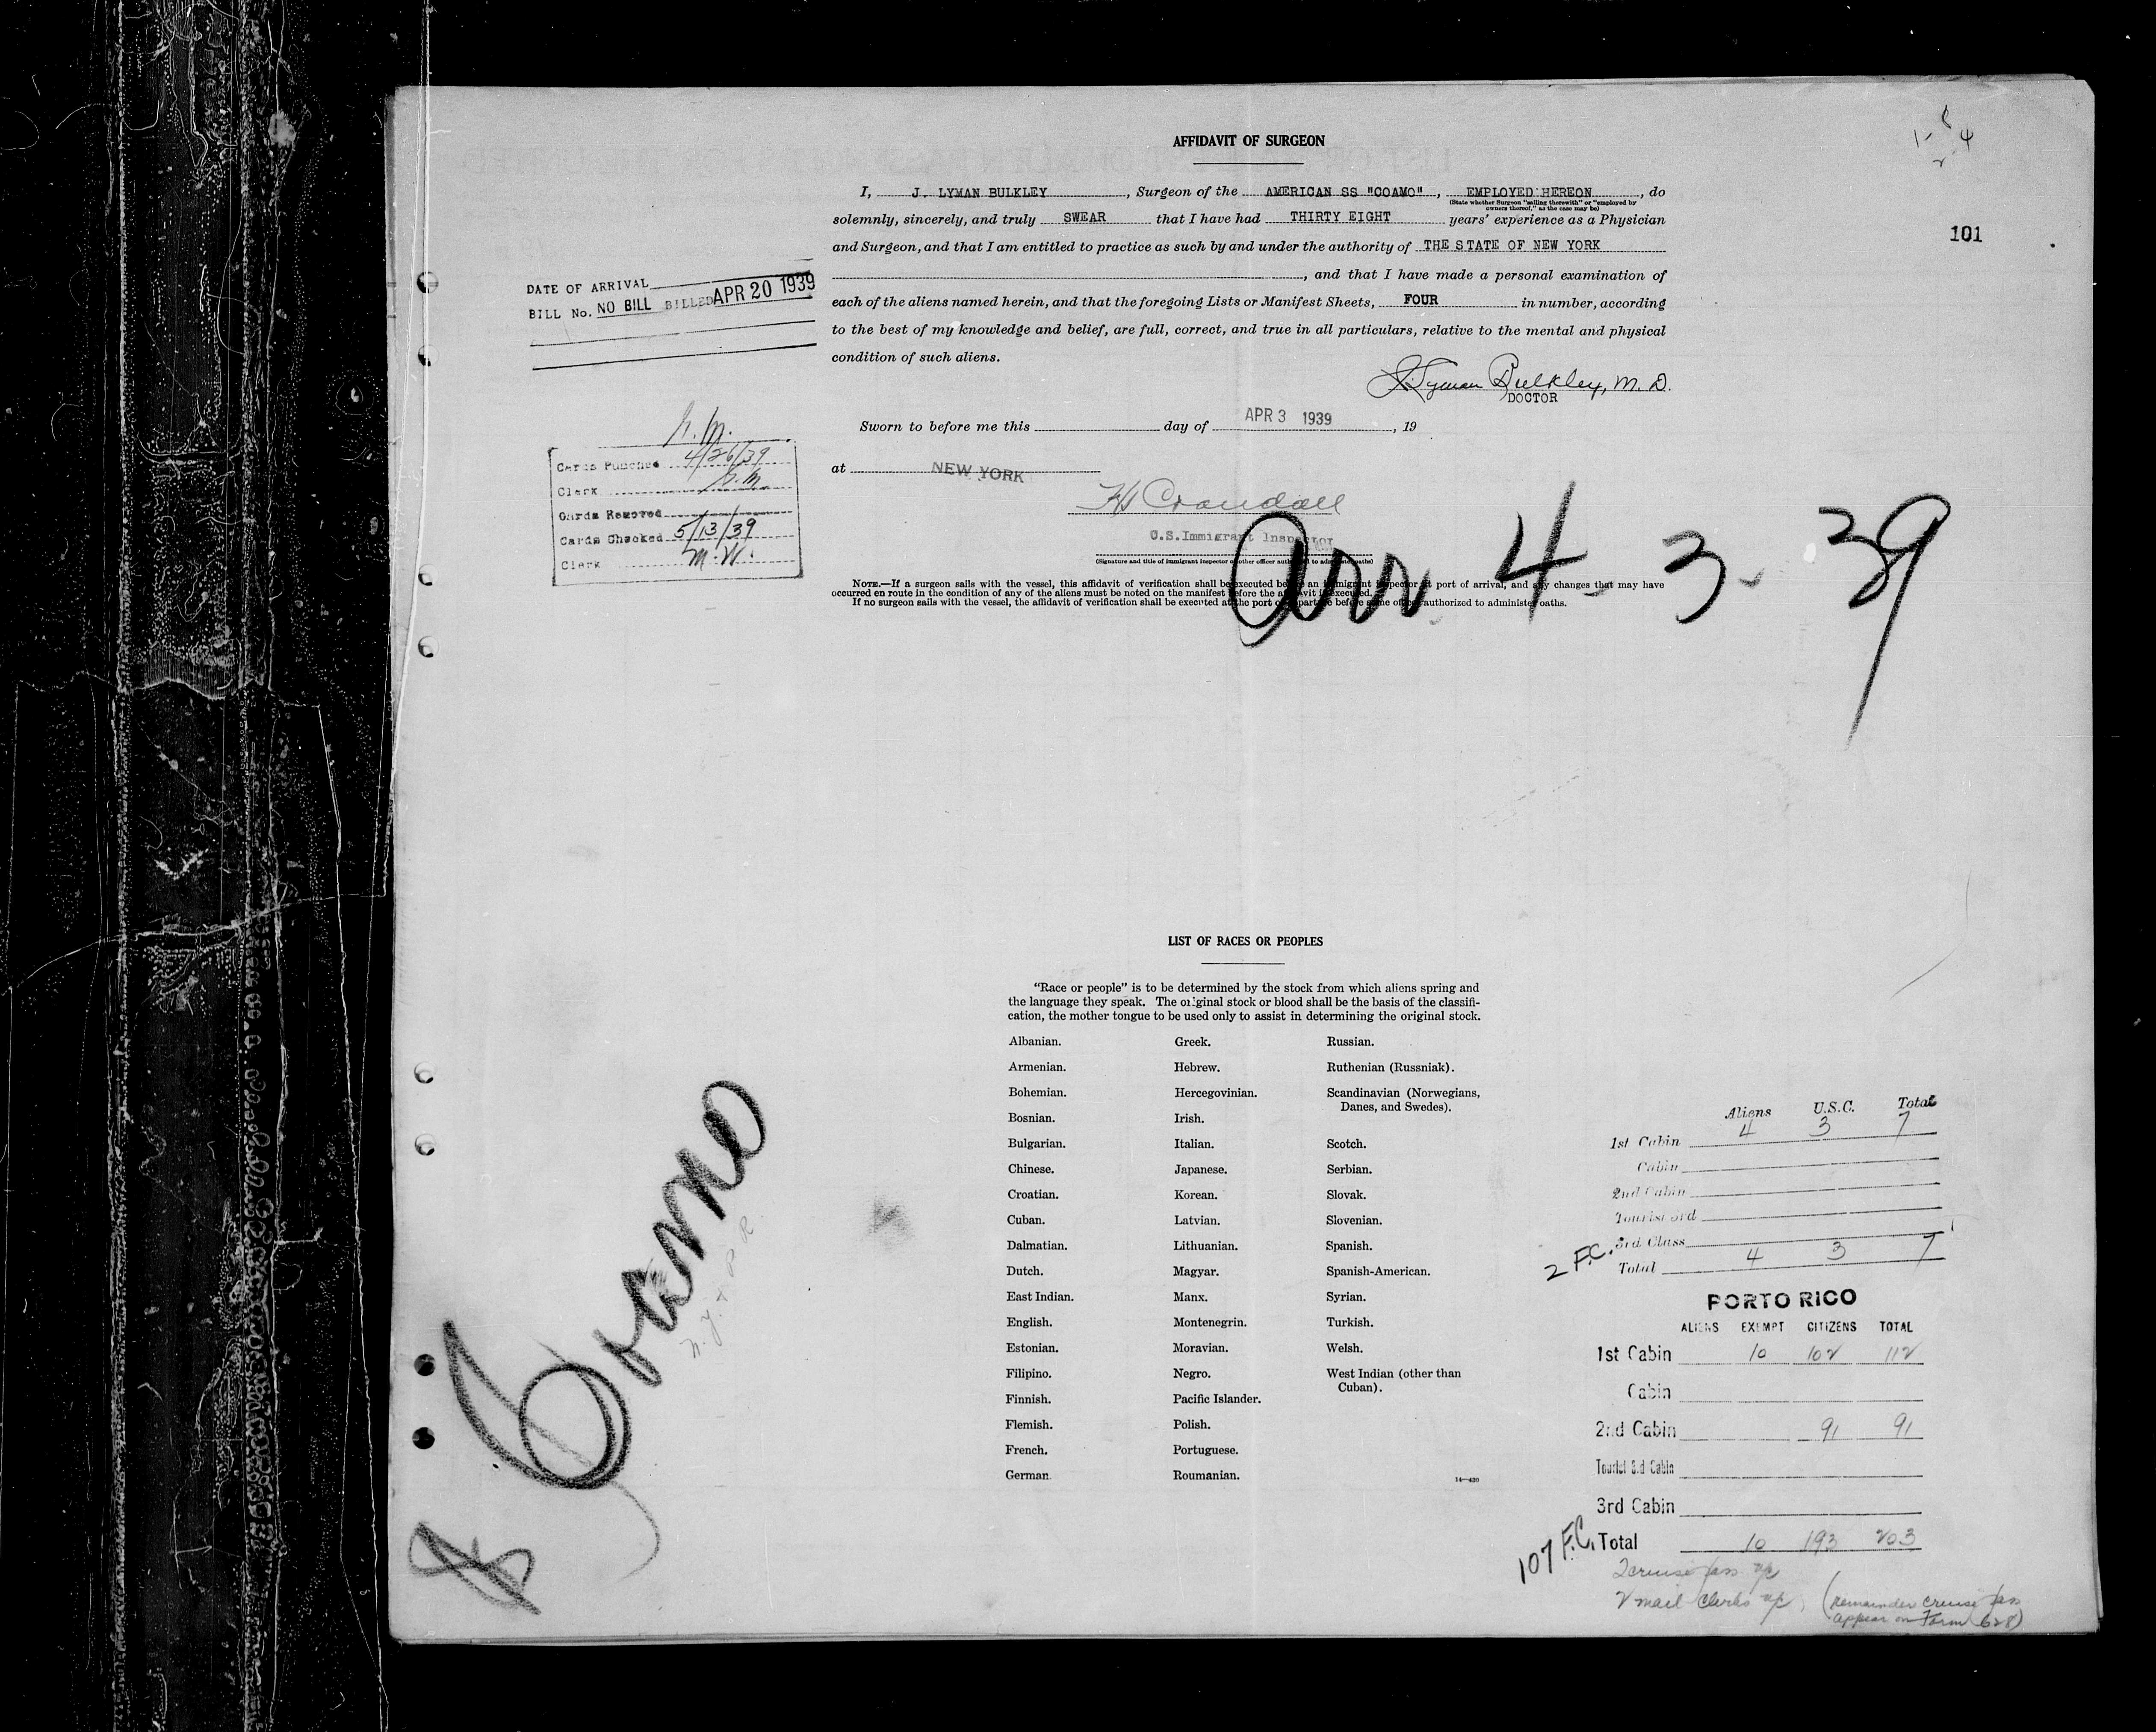 AFFIDAVIT OF SURGEON
I, J. LYMAN BULKLEY, Surgeon of the AMERICAN SS "COAMO", EMPLOYED HEREON, do
(State whether Surgeon "sailing therewith" or "employed by
owners thereof," as the case may be)
solemnly, sincerely, and truly SWEAR that I have had THIRTY EIGHT years' experience as a Physician
and Surgeon, and that I am entitled to practice as such by and under the authority of THE STATE OF NEW YORK
, and that I have made a personal examination of
each of the aliens named herein, and that the foregoing Lists or Manifest Sheets, FOUR in number, according
to the best of my knowledge and belief, are full, correct, and true in all particulars, relative to the mental and physical
condition of such aliens.
J. Lyman Bulkley, M. D.
DOCTOR
Sworn to before me this day of APR 3 1939, 19
at NEW YORK
Crandall
U.S. Immigrant Inspector
(Signature and title of immigrant inspector or other officer authorized to administer oaths)
NOTE.—If a surgeon sails with the vessel, this affidavit of verification shall be executed before an immigrant inspector at port of arrival, and any changes that may have
occurred en route in the condition of any of the aliens must be noted on the manifest before the affidavit is executed.
If no surgeon sails with the vessel, the affidavit of verification shall be executed at the port of departure before some officer authorized to administer oaths.
101
1-
2 4
DATE OF ARRIVAL
BILL No. NO BILL BILLED APR 20 1939
Cards Punched 4/26/39
Clerk
Cards Removed
Cards Checked 5/13/39
Clerk M.W.
Arr 4-3-39
LIST OF RACES OR PEOPLES
"Race or people" is to be determined by the stock from which aliens spring and
the language they speak. The original stock or blood shall be the basis of the classifi-
cation, the mother tongue to be used only to assist in determining the original stock.
Albanian. Greek. Russian.
Armenian. Hebrew. Ruthenian (Russniak).
Bohemian. Hercegovinian. Scandinavian (Norwegians,
Danes, and Swedes).
Bosnian. Irish.
Bulgarian. Italian. Scotch.
Chinese. Japanese. Serbian.
Croatian. Korean. Slovak.
Cuban. Latvian. Slovenian.
Dalmatian. Lithuanian. Spanish.
Dutch. Magyar. Spanish-American.
East Indian. Manx. Syrian.
English. Montenegrin. Turkish.
Estonian. Moravian. Welsh.
Filipino. Negro. West Indian (other than
Cuban).
Finnish. Pacific Islander.
Flemish. Polish.
French. Portuguese.
German. Roumanian.
14—430
Coamo
Aliens U.S.C. Total
1st Cabin 4 3 7
Cabin
2nd Cabin
Tourist 3rd
3rd Class
2 F.C. Total 4 3 7
PORTO RICO
ALIENS EXEMPT CITIZENS TOTAL
1st Cabin 10 102 112
Cabin
2nd Cabin 91 91
Tourist 3rd Cabin
3rd Cabin
107 F.C. Total 10 193 203
2 cruise pass
2 mail clerks
(remainder cruise pass
appear on Form 628)